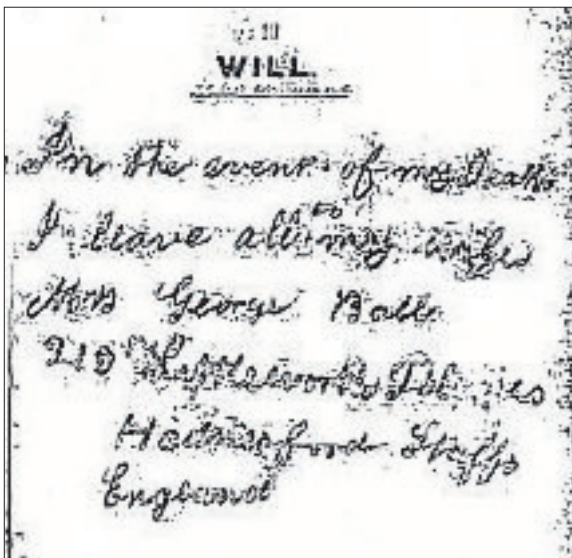 WILL.
In the event of my Death
I leave all to my wife
Mrs George Ball
219
Hednesford Staffs
England